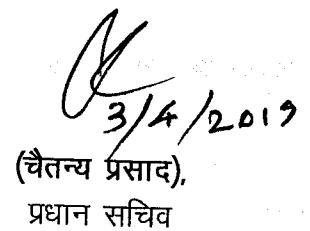 3/4/2019
(चैतन्य प्रसाद),
प्रधान सचिव